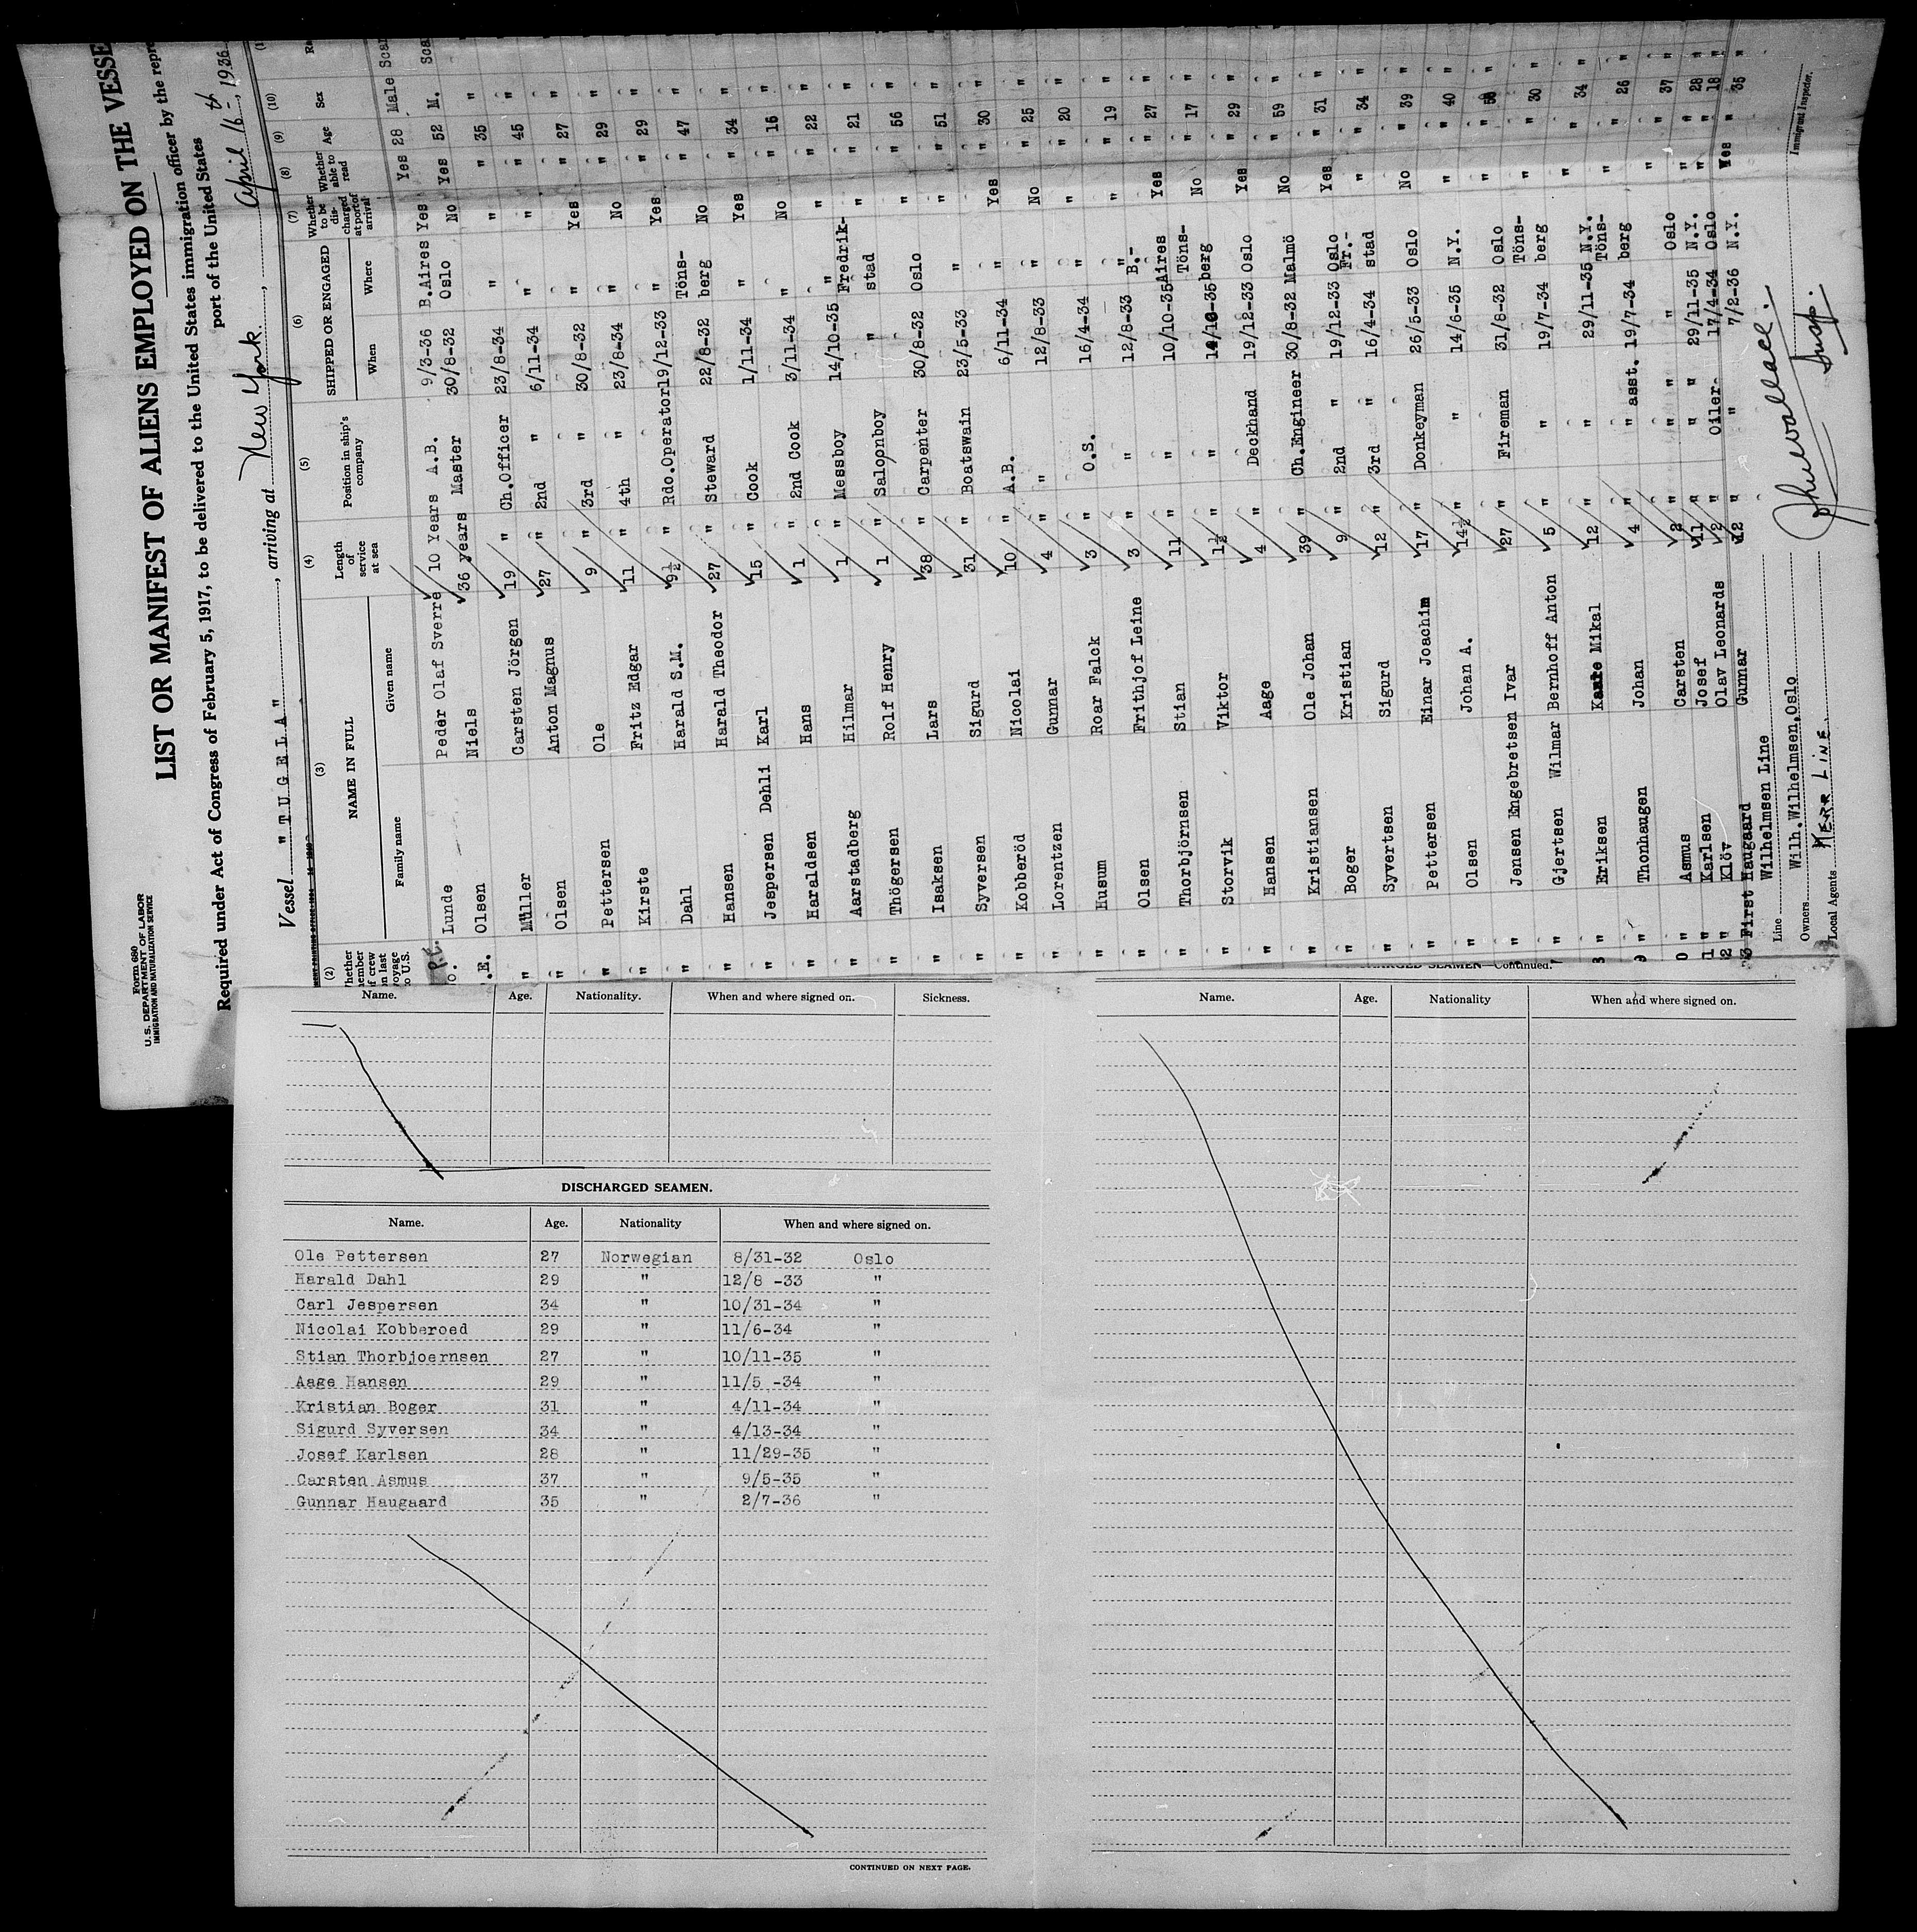 Form 680
U.S. DEPARTMENT OF LABOR
IMMIGRATION AND NATURALIZATION SERVICE
LIST OR MANIFEST OF ALIENS EMPLOYED ON THE VESSE
Required under Act of Congress of February 5, 1917, to be delivered to the United States immigration officer by the repre
port of the United States
Vessel "TUGELA", arriving at New York, April 16th, 1936
(2) (3) (4) (5) (6) (7) (8) (9) (10)
NAME IN FULL Length of service at sea Position in ship's company SHIPPED OR ENGAGED Whether to be discharged at port of arrival Whether able to read Age Sex
Family name Given name When Where
P.E. Lunde Peder Olaf Sverre 10 Years A.B. 9/3-36 B.Aires Yes Yes 28 Male Scan
Olsen Niels 36 years Master 30/8-32 Oslo No Yes 52 M. Sca
" Müller Carsten Jörgen 19 " Ch.Officer 23/8-34 " " " 35 "
" Olsen Anton Magnus 27 " 2nd " 6/11-34 " " " 45 "
" Pettersen Ole 9 " 3rd " 30/8-32 " Yes " 27 "
" Kirste Fritz Edgar 11 " 4th " 23/8-34 " No " 29 "
" Dahl Harald S.M. 9½ " Rdo.Operator 19/12-33 " Yes " 29 "
" Hansen Harald Theodor 27 " Steward 22/8-32 Töns-berg No " 47 "
" Jespersen Dehli Karl 15 " Cook 1/11-34 " Yes " 34 "
" Haraldsen Hans 1 " 2nd Cook 3/11-34 " No " 16 "
" Aarstadberg Hilmar 1 " Messboy 14/10-35 " " " 22 "
" Thögersen Rolf Henry 1 " Saloonboy " Fredrik-stad " " 21 "
" Isaksen Lars 38 " Carpenter 30/8-32 Oslo " " 56 "
" Syversen Sigurd 31 " Boatswain 23/5-33 " " " 51 "
" Kobberöd Nicolai 10 " A.B. 6/11-34 " Yes " 30 "
" Lorentzen Gunnar 4 " " 12/8-33 " No " 25 "
" Husum Roar Falck 3 " O.S. 16/4-34 " " " 20 "
" Olsen Frithjof Leine 3 " " 12/8-33 " " " 19 "
" Thorbjörnsen Stian 11 " " 10/10-35 B.-Aires Yes " 27 "
" Storvik Viktor 1½ " " 14/10-35 Töns-berg No " 17 "
" Hansen Aage 4 " Deckhand 19/12-33 Oslo Yes " 29 "
" Kristiansen Ole Johan 39 " Ch.Engineer 30/8-32 Malmö No " 59 "
" Boger Kristian 9 " 2nd " 19/12-33 Oslo Yes " 31 "
" Syvertsen Sigurd 12 " 3rd " 16/4-34 Fr.-stad " " 34 "
" Pettersen Einar Joachim 17 " Donkeyman 26/5-33 Oslo No " 39 "
" Olsen Johan A. 14½ " " 14/6-35 N.Y. " " 40 "
" Jensen Engebretsen Ivar 27 " Fireman 31/8-32 Oslo " " 50 "
" Gjertsen Wilmar Bernhoff Anton 5 " " 19/7-34 Töns-berg " " 30 "
" Eriksen Kaare Mikal 12 " " 29/11-35 N.Y. " " 34 "
" Thonhaugen Johan 4 " " asst. 19/7-34 Töns-berg " " 26 "
" Asmus Carsten 2 " " " " Oslo " " 37 "
" Karlsen Josef 11 " " " 29/11-35 N.Y. " " 28 "
" Klöv Olav Leonards 2 " Oiler 17/4-34 Oslo " " 18 "
First Haugaard Gunnar 12 " " 7/2-36 N.Y. Yes " 35 "
Line Wilhelmsen Line
Owners Wilh.Wilhelmsen,Oslo
Local Agents KERR LINE
Insp.
Immigrant Inspector.
Name. Age. Nationality. When and where signed on. Sickness.
DISCHARGED SEAMEN.
Name. Age. Nationality When and where signed on.
Ole Pettersen 27 Norwegian 8/31-32 Oslo
Harald Dahl 29 " 12/8 -33 "
Carl Jespersen 34 " 10/31-34 "
Nicolai Kobberoed 29 " 11/6-34 "
Stian Thorbjoernsen 27 " 10/11-35 "
Aage Hansen 29 " 11/5 -34 "
Kristian Boger 31 " 4/11-34 "
Sigurd Syversen 34 " 4/13-34 "
Josef Karlsen 28 " 11/29-35 "
Carsten Asmus 37 " 9/5-35 "
Gunnar Haugaard 35 " 2/7-36 "
CONTINUED ON NEXT PAGE.
SEAMEN—Continued.
Name. Age. Nationality When and where signed on.